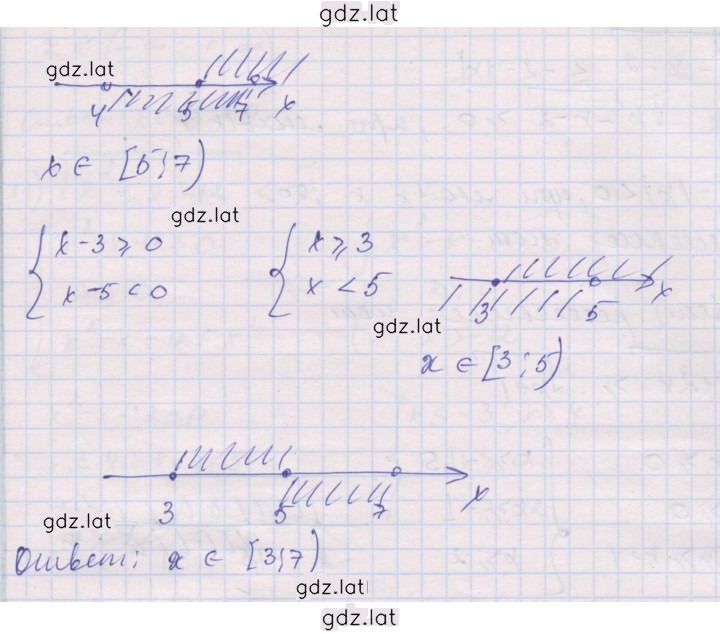 gdz.lat
gdz.lat
4 5 7 x
x ∈ [5;7)
gdz.lat
{ x - 3 ⩾ 0 { x ⩾ 3
{ x - 5 < 0 { x < 5
3 5 x
gdz.lat
x ∈ [3;5)
3 5 7 x
gdz.lat
Ответ: x ∈ [3;7)
gdz.lat
gdz.lat